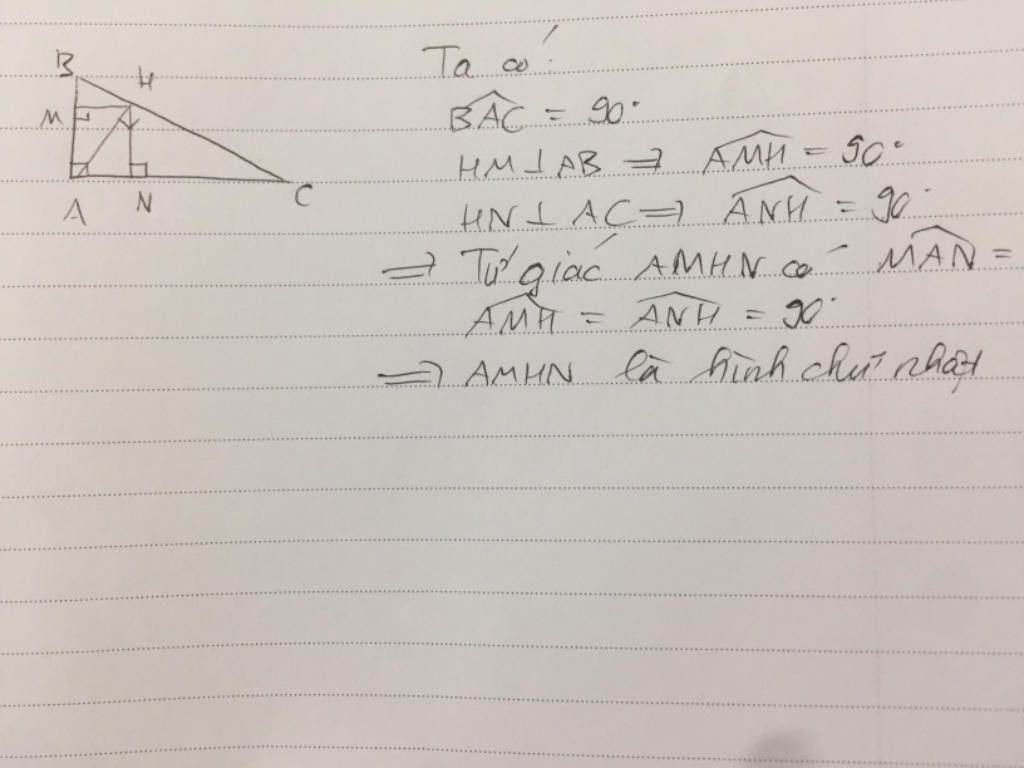 B
H
M
A
N
C
Ta có:
\widehat{BAC} = 90°
HM ⊥ AB ⇒ \widehat{AMH} = 90°
HN ⊥ AC ⇒ \widehat{ANH} = 90°
⇒ Tứ giác AMHN có \widehat{MAN} =
\widehat{AMH} = \widehat{ANH} = 90°
⇒ AMHN là hình chữ nhật